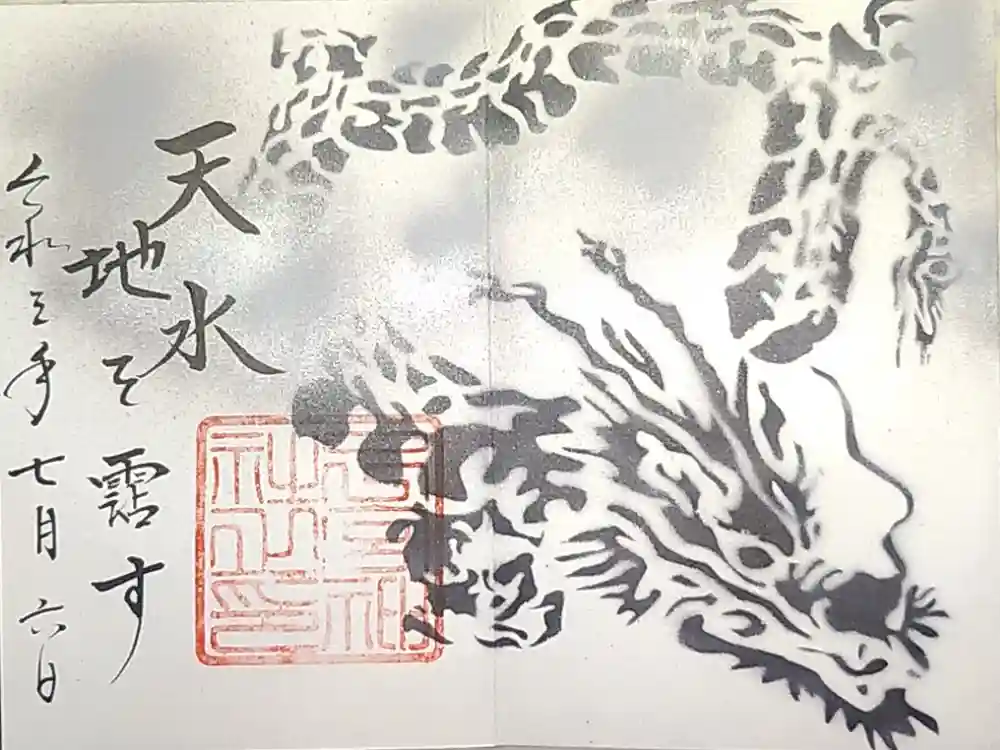 天地水を霑す
令和三年七月六日